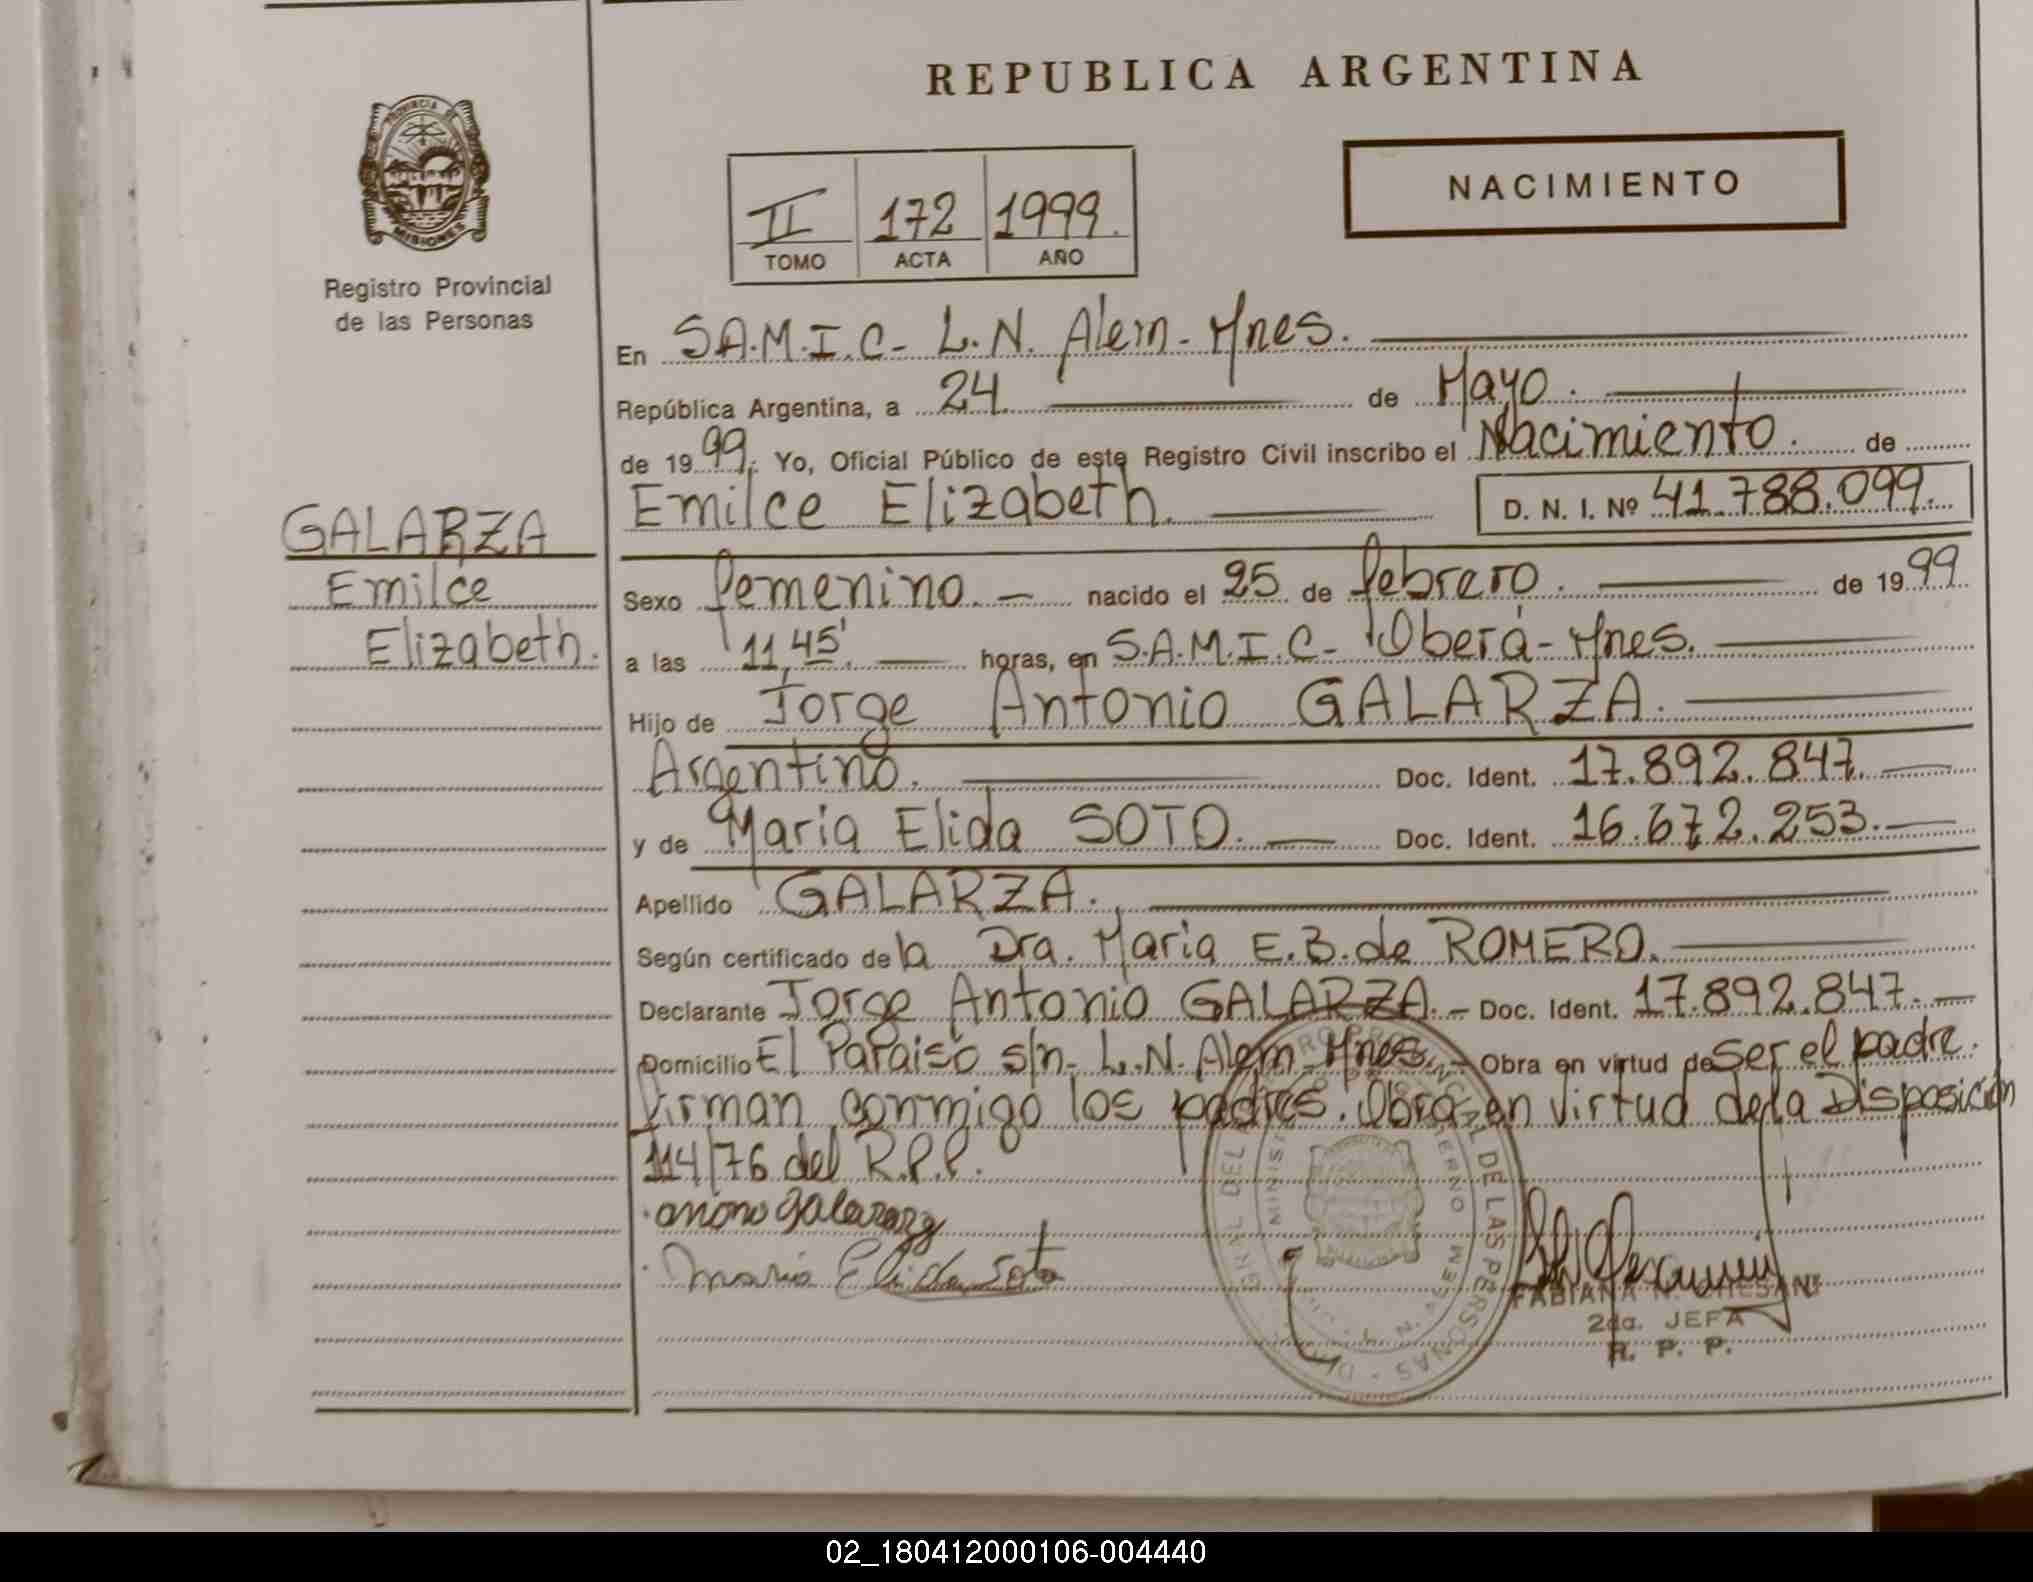 REPUBLICA ARGENTINA
PROVINCIA DE MISIONES
Registro Provincial
de las Personas
II 172 1999.
TOMO ACTA AÑO
NACIMIENTO
En S.A.M.I.C- L.N. Alem- Mnes.
República Argentina, a 24 de Mayo.
de 1999. Yo, Oficial Público de este Registro Civil inscribo el Nacimiento. de
Emilce Elizabeth. D. N. I. Nº 41.788.099.
GALARZA
Emilce
Elizabeth.
Sexo femenino. nacido el 25 de febrero. de 1999
a las 11,45'. horas, en S.A.M.I.C- Oberá- Mnes.
Hijo de Jorge Antonio GALARZA.
Argentino. Doc. Ident. 17.892.847.
y de Maria Elida SOTO. Doc. Ident. 16.672.253.
Apellido GALARZA.
Según certificado de la Dra. Maria E.B. de ROMERO.
Declarante Jorge Antonio GALARZA.- Doc. Ident. 17.892.847.
Domicilio El Paraiso s/n- L.N. Alem- Mnes.- Obra en virtud de ser el padre.
firman conmigo los padres. Obra en virtud de la Disposición
114/76 del R.P.P.
Maria Elida Soto
FABIANA
2da. JEFA
R. P. P.
DE LAS PERSONAS
02_180412000106-004440